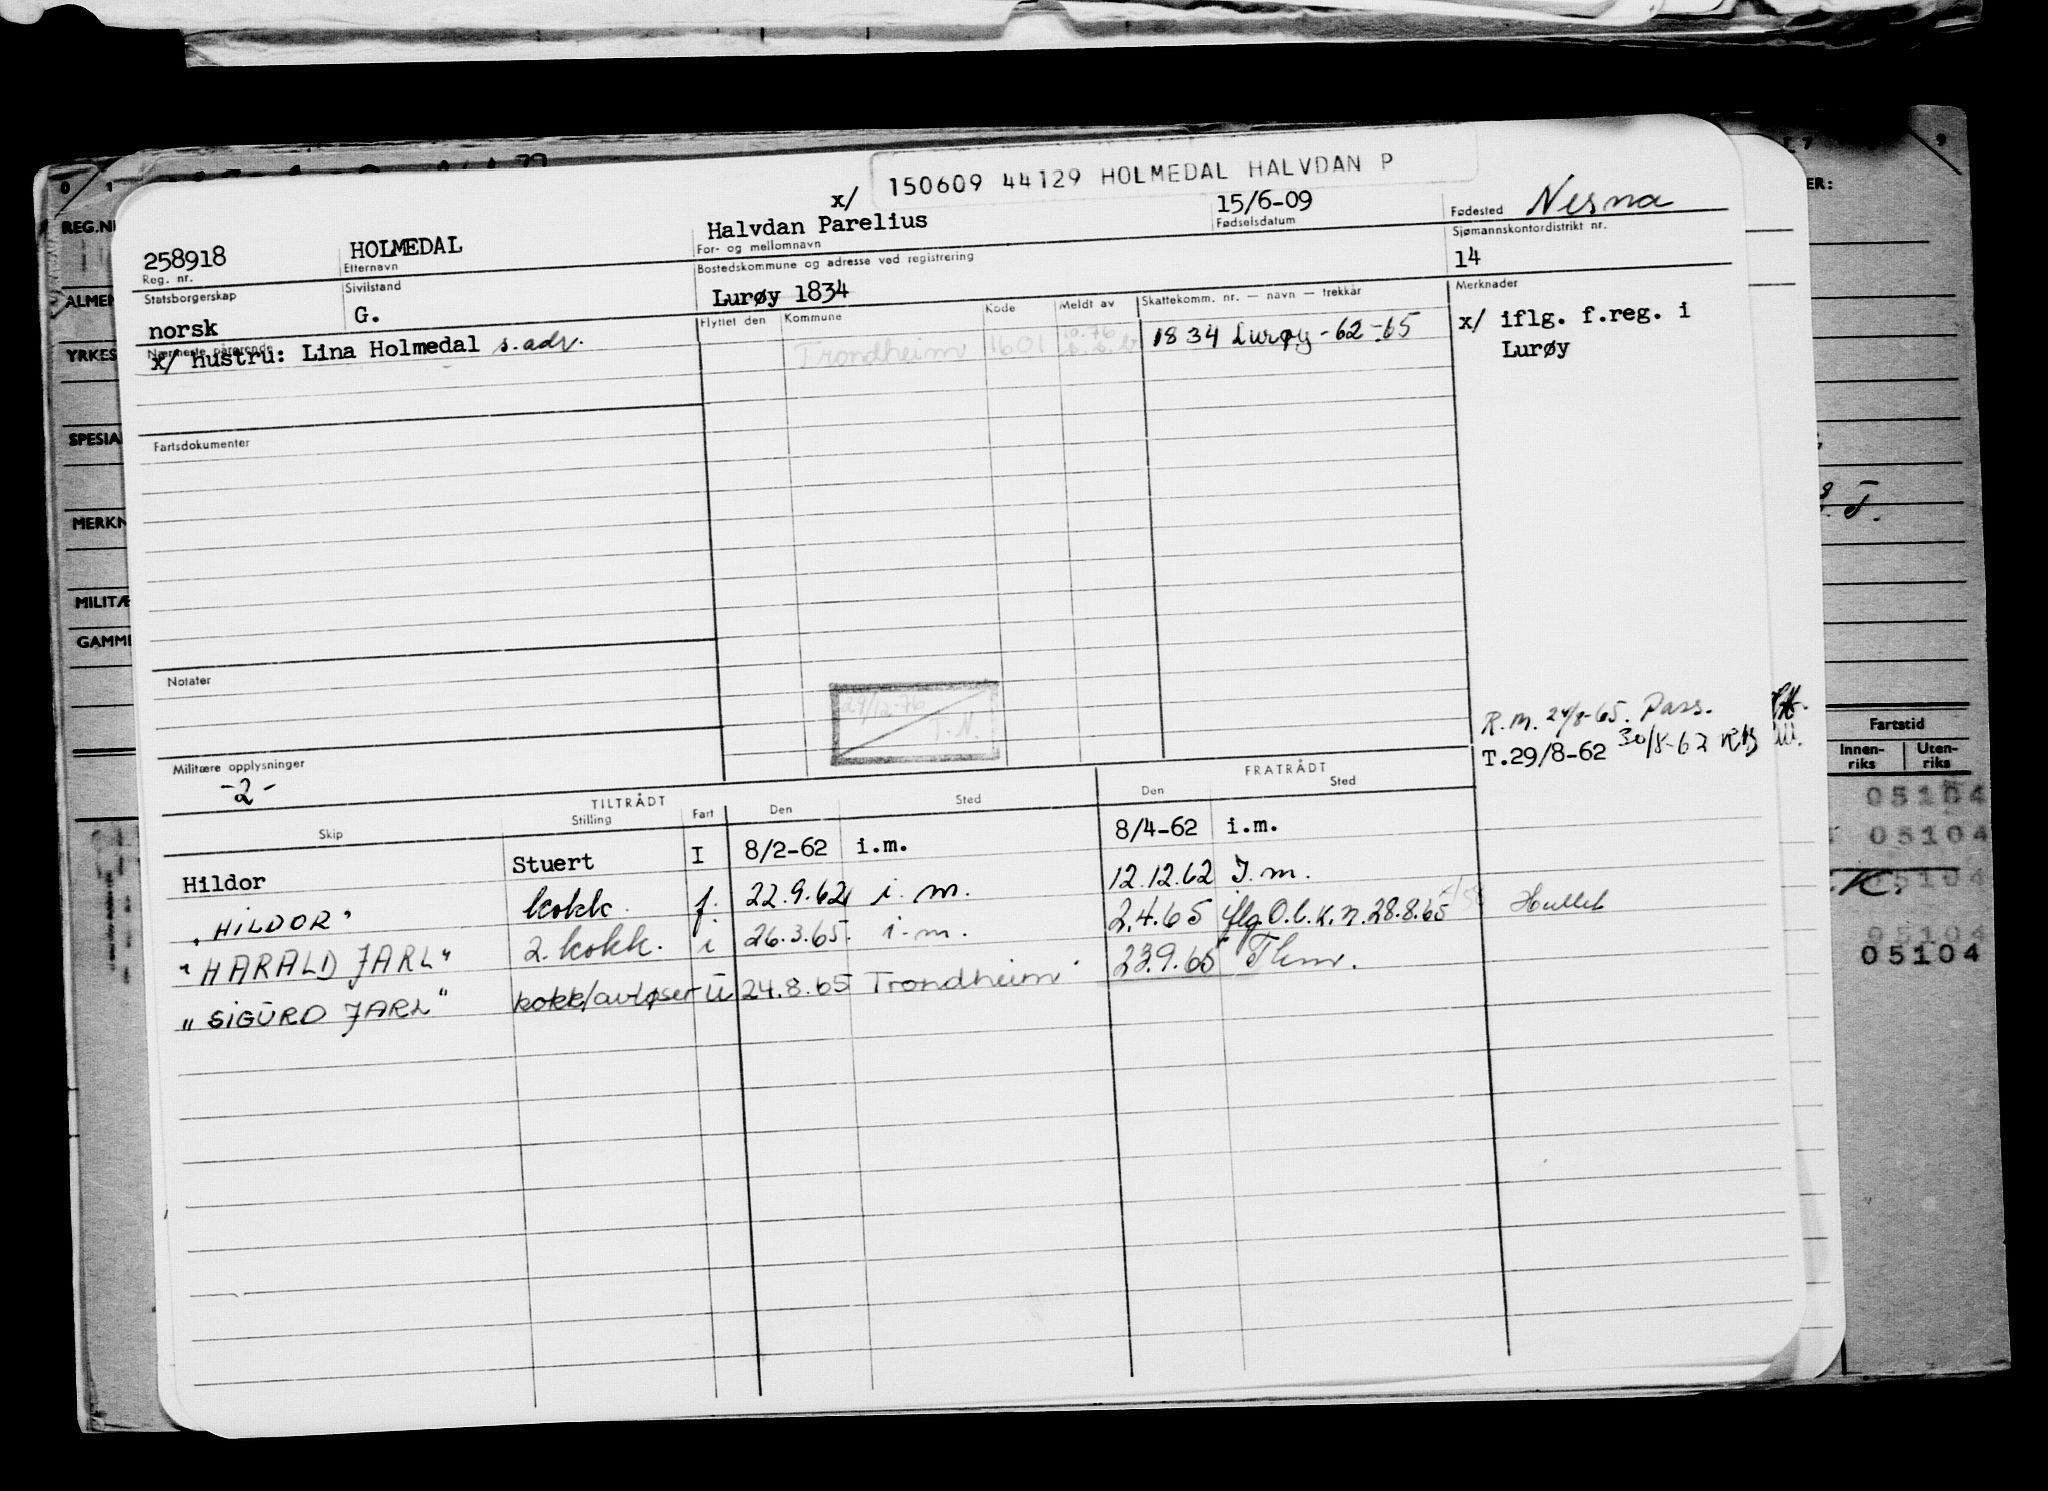 150609 44129 HOLMEDAL HALVDAN P
x/
258918 HOLMEDAL Halvdan Parelius 15/6-09 Fødested Nesna
Reg. nr. Etternavn For- og mellomnavn Fødselsdatum Sjømannskontordistrikt nr.
Statsborgerskap Sivilstand Bostedskommune og adresse ved registrering 14
norsk G. Lurøy 1834 Merknader
Nærmeste pårørende Flyttet den Kommune Kode Meldt av Skattekomm. nr. — navn — trekkår
x/ hustru: Lina Holmedal s. adr. Trondheim 1601 10.76 1834 Lurøy - 62 - 65 x/ iflg. f.reg. i
Lurøy
Fartsdokumenter
Notater
29/12-76
T.N.
R.M. 24/8-65. Pass.
T.29/8-62 30/8-62
Militære opplysninger
-2-
TILTRÅDT FRATRÅDT
Skip Stilling Fart Den Sted Den Sted
Hildor Stuert I 8/2-62 i.m. 8/4-62 i.m.
"HILDOR" kokk f. 22.9.62 i.m. 12.12.62 I.m.
"HARALD JARL" 2. kokk. i 26.3.65. i.m. 2.4.65 iflg. O.b.k.n. 28.8.65
"SIGURD JARL" kokk/avløser U 24.8.65 Trondheim 23.9.65 Thm.
REG.N
ALMEN
YRKES
SPESIA
MERKN
MILITÆ
GAMME
ER:
Fartstid
Innen-
riks
Uten-
riks
05104
05104
05104
05104
05104